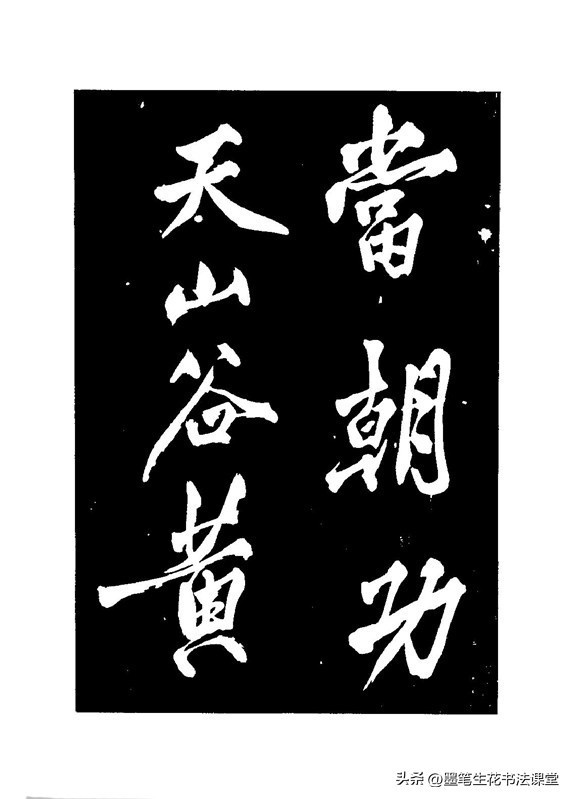 當朝功
天山谷黄
头条 @墨笔生花书法课堂